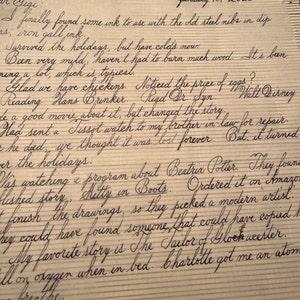 I finally found some ink to use with the old steel nibs in dip
iron gall ink.
Survived the holidays, but have colds now.
Been very mild, haven't had to burn much wood. It's been
ing a lot, which is typical.
Glad we have chickens. Noticed the price of eggs?
Reading Hans Brinker. Read Dr. Syn. Walt Disney
e a good movie about it, but changed the story.
Had sent a Tissot watch to my brother in law for repair
he died, we thought it was lost forever. But it turned
er the holidays.
Was watching a program about Beatrix Potter. They found
blished story, Kitty in Boots. Ordered it on Amazon
t finish the drawings, so they picked a modern artist
They could have found someone that could have copied h
My favorite story is The Tailor of Gloucester.
ll on oxygen when in bed. Charlotte got me an atom
breathe